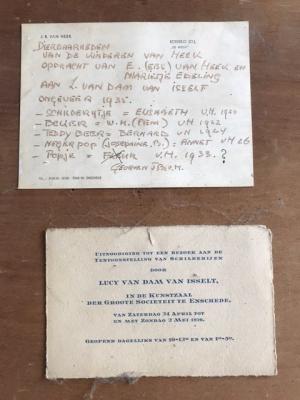 J.B. VAN HEEK
DIERBAARHEDEN
VAN DE KINDEREN VAN HEEK
OPDRACHT VAN E. VAN HEEK EN
MARIETJE EDELING
AAN L. VAN DAM VAN ISSELT
ONGEVEER 1935.
- SCHILDERIJTJE = ELISABETH V.H. 1920
- BEKER = W.H. V.H 1922
- TEDDY BEER = BERNARD V H 1924
- NEGERPOP (JOSEPHINE B.): ANNET V H 26
- POPJE = V.H. 1933. ?
UITNOODIGING TOT EEN BEZOEK AAN DE
TENTOONSTELLING VAN SCHILDERIJEN
DOOR
LUCY VAN DAM VAN ISSELT,
IN DE KUNSTZAAL
DER GROOTE SOCIETEIT TE ENSCHEDE,
VAN ZATERDAG 24 APRIL TOT
EN MET ZONDAG 2 MEI 1926.
GEOPEND DAGELIJKS VAN 10-12 EN VAN 1-5